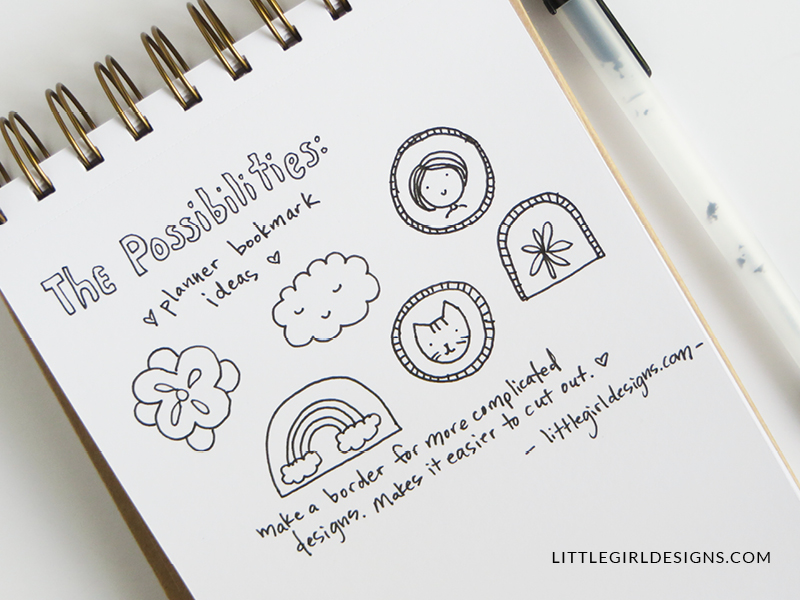 The Possibilities:
♡ planner bookmark
ideas ♡
make a border for more complicated
designs. Makes it easier to cut out. ♡
- littlegirldesigns.com -
LITTLEGIRLDESIGNS.COM